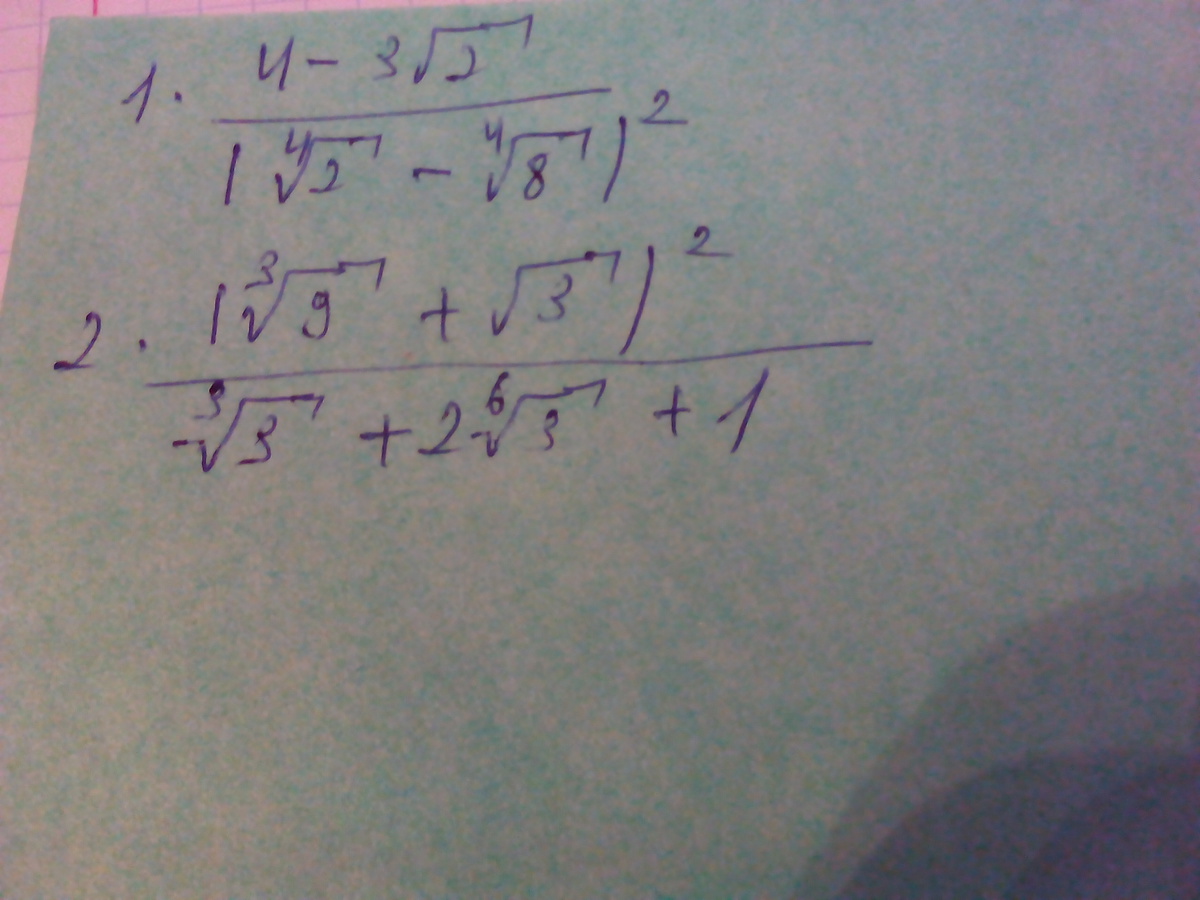 1. 4 - 3√2
(∜2 - ∜8)²
2. (∛9 + √3)²
∛3 + 2 ⁶√3 + 1